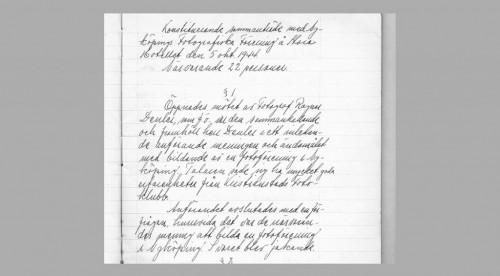 Konstituerande sammanträde med Ny-
köpings Fotografiska Förening å Stora
Hotellet den 5 okt. 1944.
Närvarande 22 personer.
§ 1
Öppnades mötet av Fotograf Ragnar
som den sammankallande
och framhöll herr i ett inledan-
de anförande meningen och ändamålet
med bildande av en fotoförening i Ny-
köping. Talaren sade sig ha mycket goda
erfarenheter från Kristianstads Foto-
klubb.
Anförandet avslutades med en frå-
gan, huruvida det var de närvaran-
des mening att bilda en fotoförening
i Nyköping. Svaret blev jakande.
§ 2